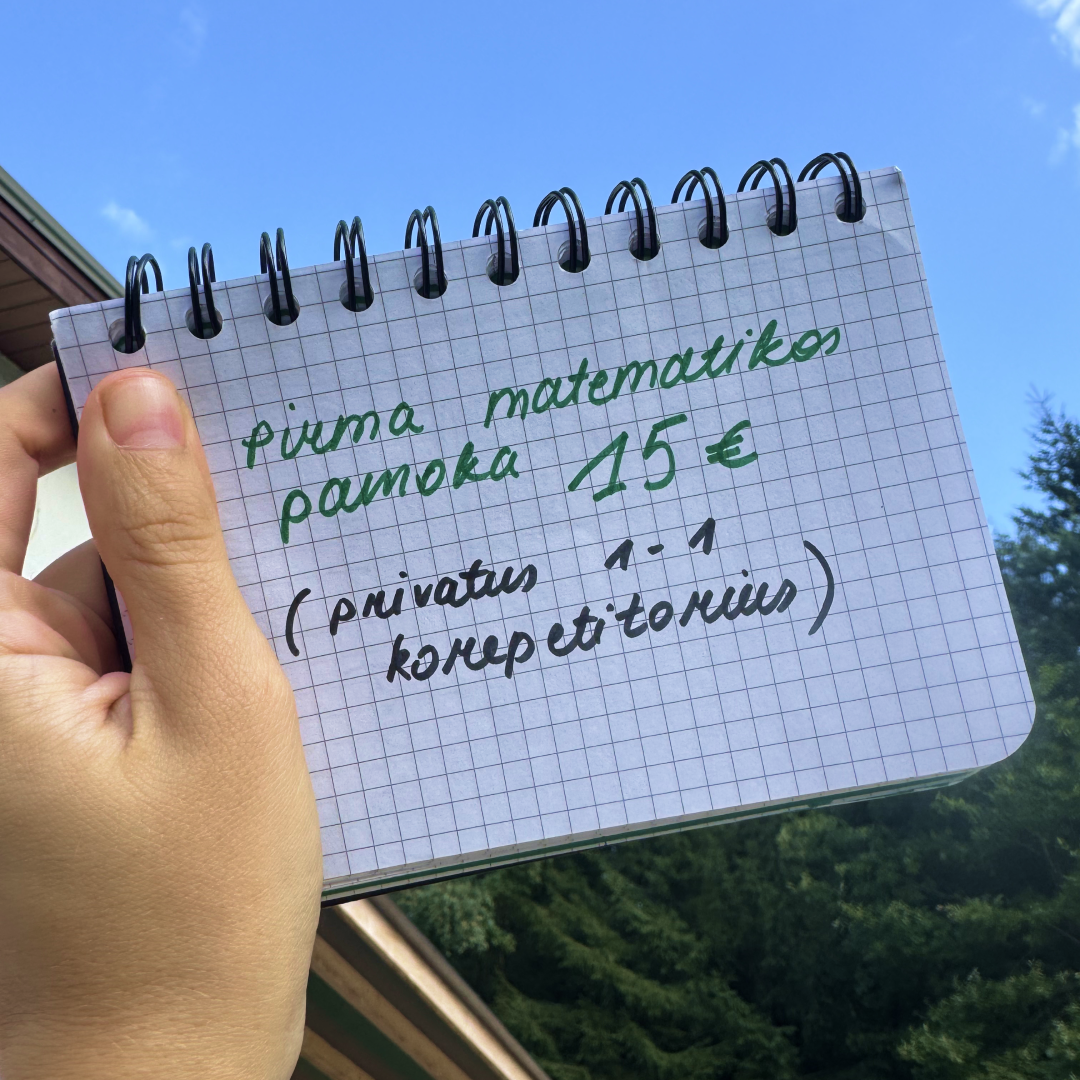 pirma matematikos
pamoka 15 €
(privatus 1-1
korepetitorius)